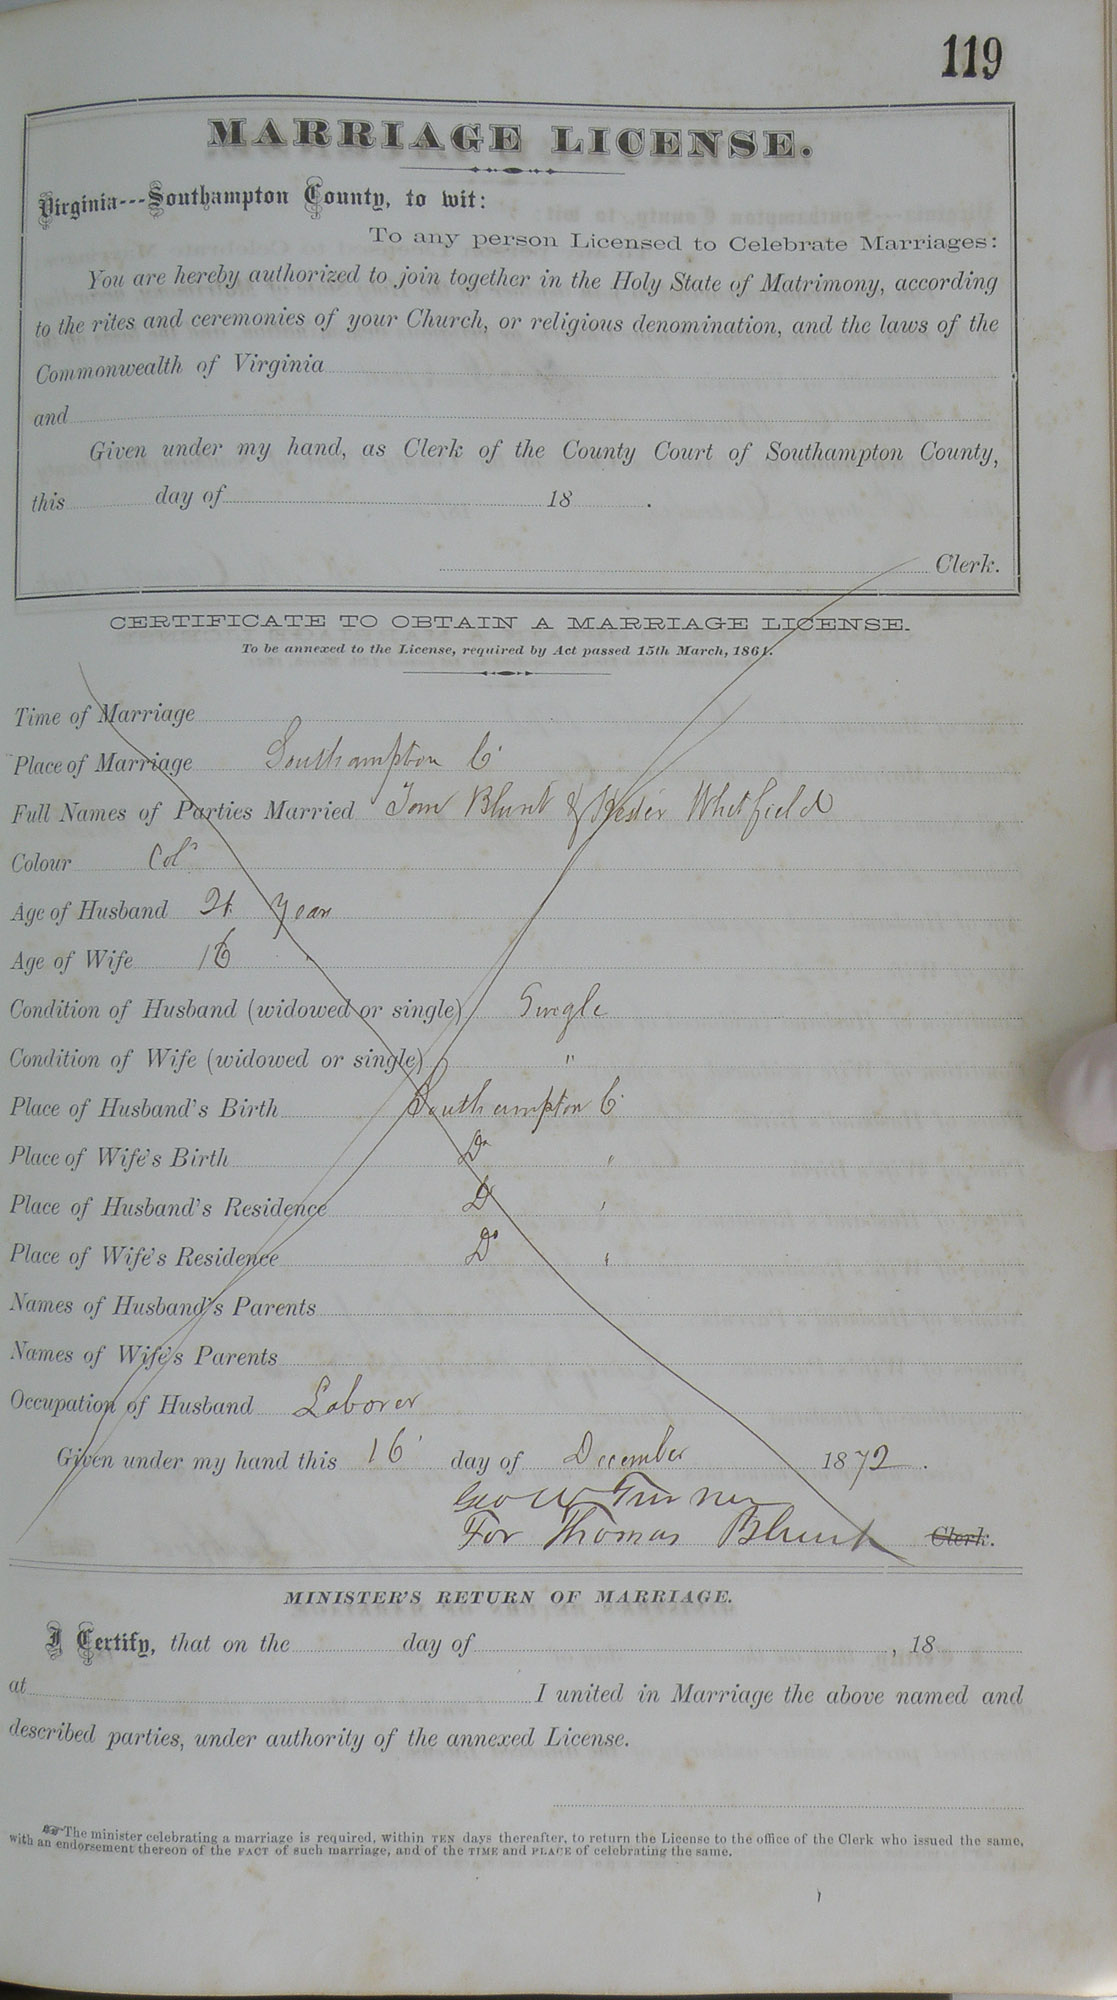 119
MARRIAGE LICENSE.
Virginia---Southampton County, to wit:
To any person Licensed to Celebrate Marriages:
You are hereby authorized to join together in the Holy State of Matrimony, according
to the rites and ceremonies of your Church, or religious denomination, and the laws of the
Commonwealth of Virginia
and
Given under my hand, as Clerk of the County Court of Southampton County,
this day of 18 .
Clerk.
CERTIFICATE TO OBTAIN A MARRIAGE LICENSE.
To be annexed to the License, required by Act passed 15th March, 1861.
Time of Marriage
Place of Marriage Southampton Co
Full Names of Parties Married Tom Blunt & Hester Whitfield
Colour Cold
Age of Husband 21 Years
Age of Wife 16 "
Condition of Husband (widowed or single) Single
Condition of Wife (widowed or single) "
Place of Husband's Birth Southampton Co
Place of Wife's Birth Do "
Place of Husband's Residence Do "
Place of Wife's Residence Do "
Names of Husband's Parents
Names of Wife's Parents
Occupation of Husband Laborer
Given under my hand this 16 day of December 1872.
Geo W Turner
For Thomas Blunt Clerk.
MINISTER'S RETURN OF MARRIAGE.
I Certify, that on the day of , 18
at I united in Marriage the above named and
described parties, under authority of the annexed License.
☞The minister celebrating a marriage is required, within TEN days thereafter, to return the License to the office of the Clerk who issued the same,
with an endorsement thereon of the FACT of such marriage, and of the TIME and PLACE of celebrating the same.